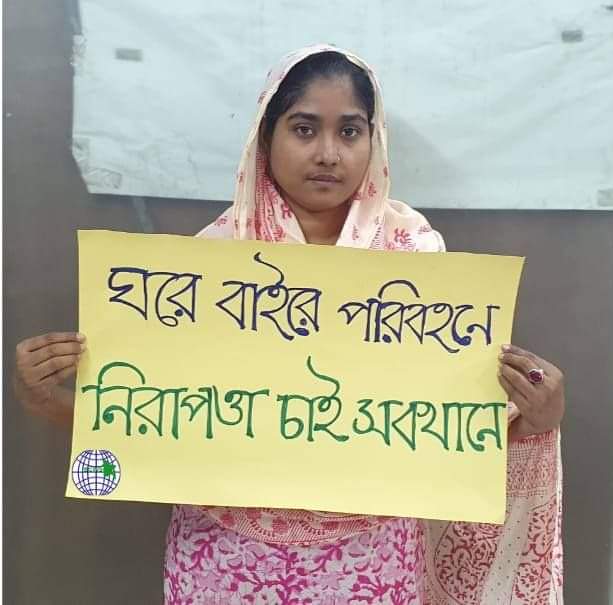 ঘরে বাইরে পরিবহনে
নিরাপত্তা চাই সবখানে